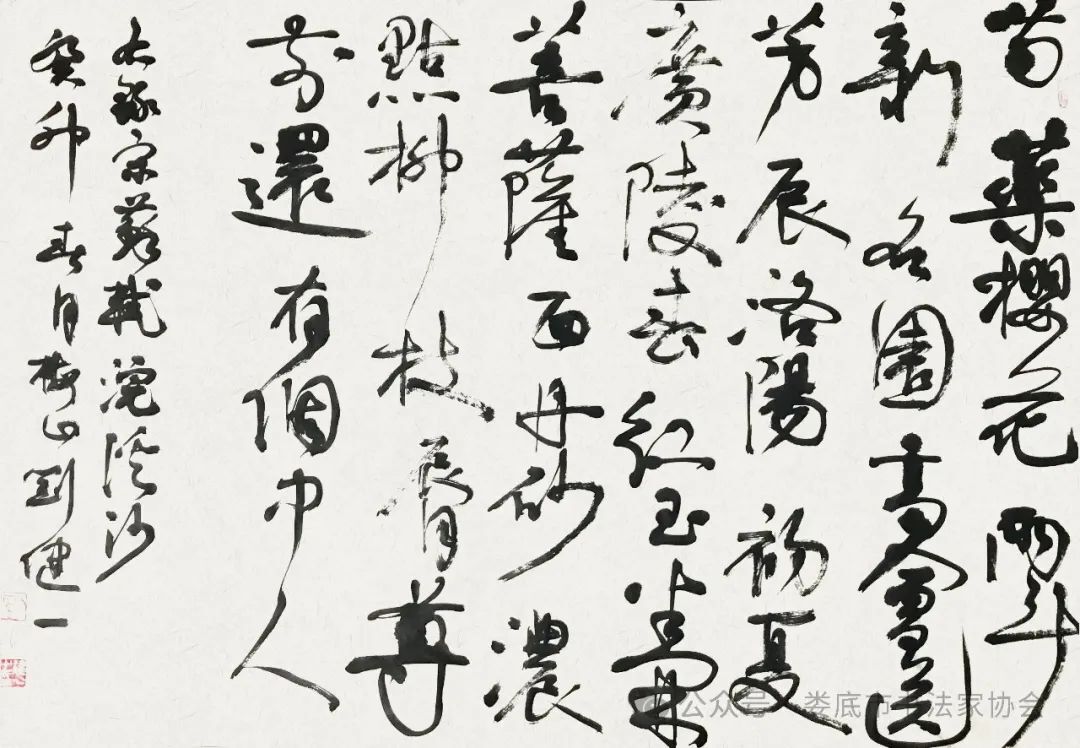 芍藥櫻花兩斗
新名園高會送
芳辰洛陽初夏
廣陵春紅玉半開
菩薩面丹砂濃
點柳枝脣尊
前還有個中人
右錄宋蘇軾浣溪沙
癸卯春月梅山劉健一
公众号 · 娄底市书法家协会